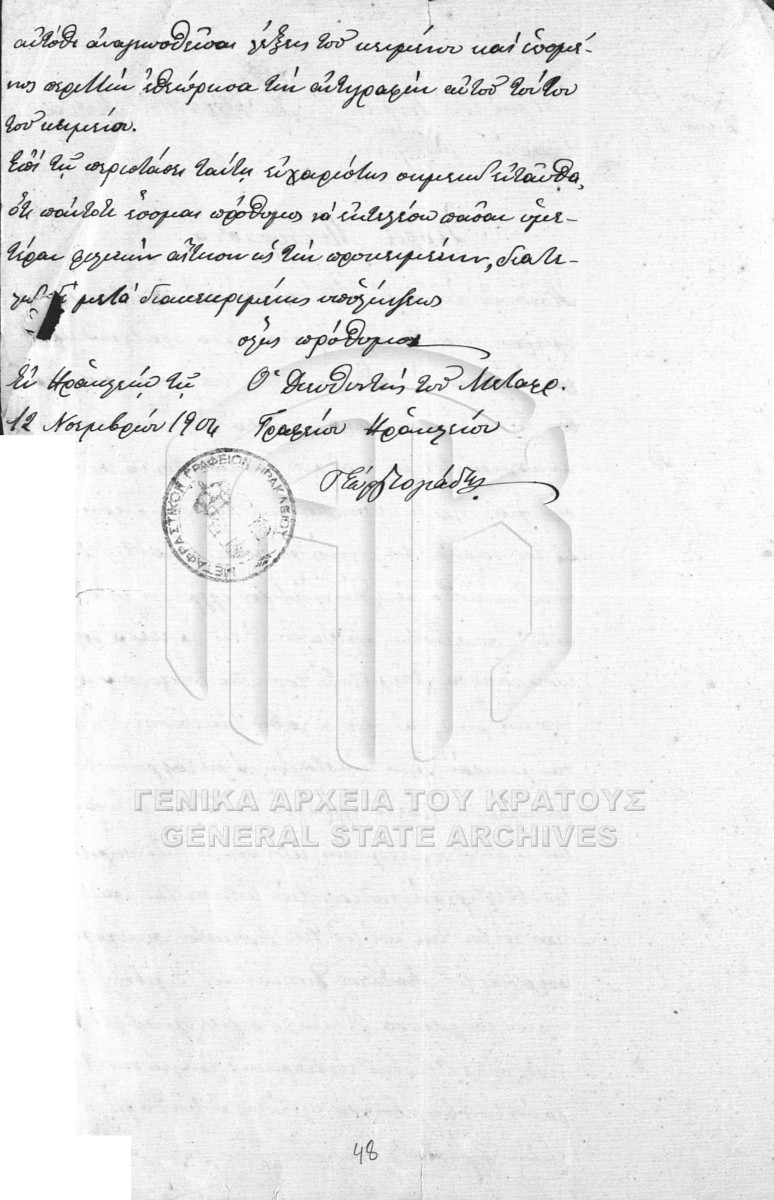 αὐτόθι ἀναγνωσθεῖσαι λέξεις τοῦ κειμένου καὶ ἑπομέ-
νως περιττὴν ἐθεώρησα τὴν ἀντιγραφὴν αὐτοῦ τούτου
τοῦ κειμένου.
Ἐπὶ τῇ περιστάσει ταύτῃ εὐχαρίστως σημειῶ ἐνταῦθα,
ὅτι πάντοτε ἔσομαι πρόθυμος νὰ ἐκτελέσω πᾶσαν ὑμε-
τέραν φιλικὴν αἴτησιν ὡς τὴν προκειμένην, διατε-
λῶ δὲ μετὰ διακεκριμένης ὑπολήψεως
ὅλως πρόθυμος
Ἐν Ἡρακλείῳ τῇ Ὁ Διευθυντὴς τοῦ Μεταφρ.
12 Νοεμβρίου 1904 Γραφείου Ἡρακλείου
ΜΕΤΑΦΡΑΣΤΙΚΟΝ ΓΡΑΦΕΙΟΝ ΗΡΑΚΛΕΙΟΥ
ΓΕΝΙΚΑ ΑΡΧΕΙΑ ΤΟΥ ΚΡΑΤΟΥΣ
GENERAL STATE ARCHIVES
48